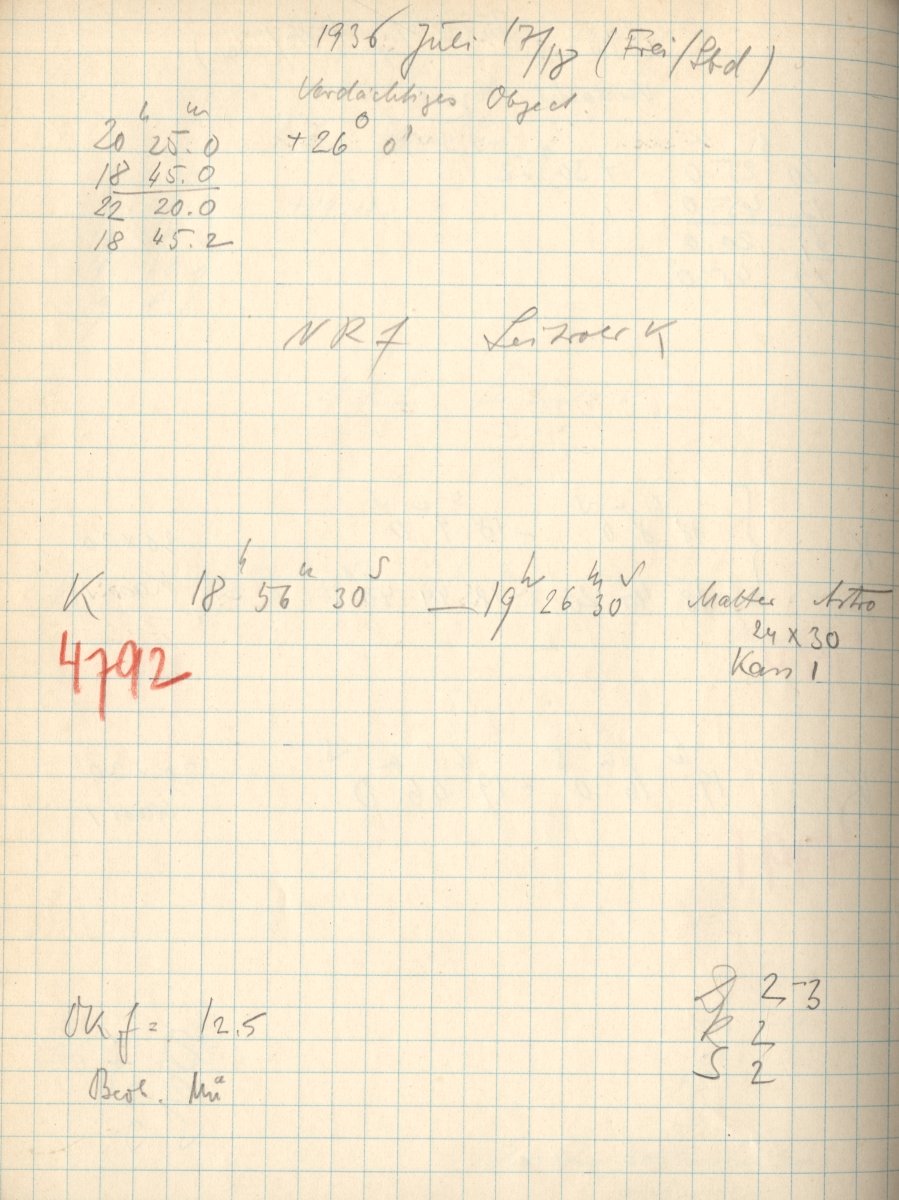 1936 Juli 17/18 (Frei/Sbd)
Verdächtiges Object.
20h 25m.0 +26° 0'
18 45.0
22 20.0
18 45.2
NRf Leitrohr K
K 18h 56m 30s — 19h 26m 30s Matter Astro
4792 24 x 30
Kass 1
OKf = 12.5
Beob. Mü
2-3
R 2
S 2